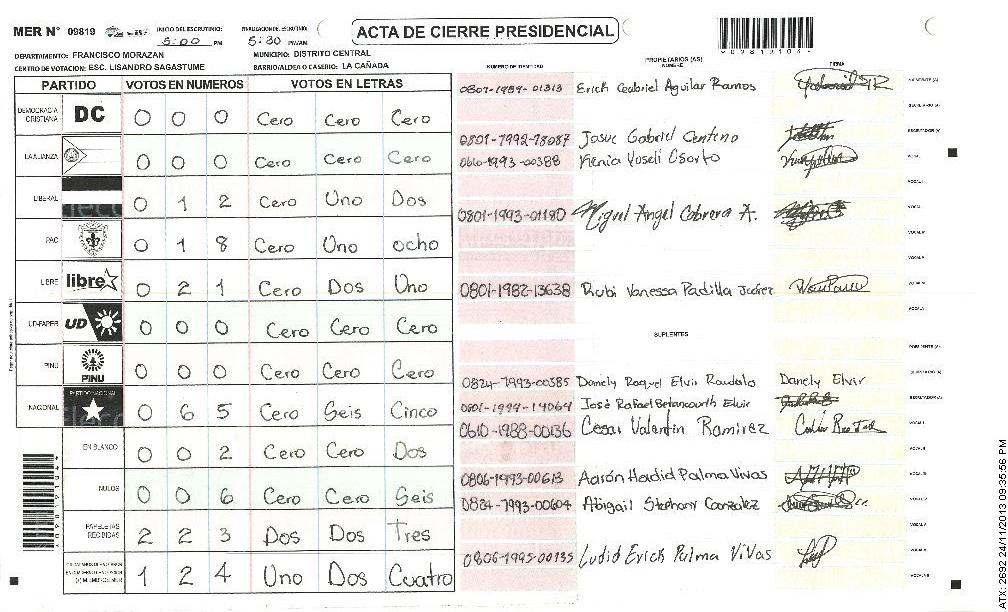 MER N° 09819 INICIO DEL ESCRUTINIO: 5:00 PM FINALIZACION DE ESCRUTINIO: 5:30 PM/AM ACTA DE CIERRE PRESIDENCIAL
DEPARTAMENTO: FRANCISCO MORAZAN MUNICIPIO: DISTRITO CENTRAL
CENTRO DE VOTACION: ESC. LISANDRO SAGASTUME BARRIO/ALDEA O CASERIO: LA CAÑADA
PARTIDO VOTOS EN NUMEROS VOTOS EN LETRAS
DEMOCRACIA CRISTIANA DC 0 0 0 Cero Cero Cero
LA ALIANZA 0 0 0 Cero Cero Cero
LIBERAL 0 1 2 Cero Uno Dos
PAC 0 1 8 Cero Uno ocho
LIBRE libre 0 2 1 Cero Dos Uno
UD-FAPER UD 0 0 0 Cero Cero Cero
PINU PINU 0 0 0 Cero Cero Cero
NACIONAL PARTIDO NACIONAL 0 6 5 Cero Seis Cinco
EN BLANCO 0 0 2 Cero Cero Dos
NULOS 0 0 6 Cero Cero Seis
PAPELETAS RECIBIDAS 2 2 3 Dos Dos Tres
1 2 4 Uno Dos Cuatro
PROPIETARIOS (AS)
NUMERO DE IDENTIDAD NOMBRE FIRMA
0807-1989-01313 Erick Gabriel Aguilar Ramos
0801-1992-18087 Josue Gabriel Centeno
0610-1993-00388 Kenia Yoseli Osorto
0801-1993-01180 Miguel Angel Cabrera A.
0801-1982-13638 Rubi Vanessa Padilla Juárez
SUPLENTES
0824-1993-00385 Danely Raquel Elvir Raudalo Danely Elvir
José Rafael Betancourth Elvir
0610-1988-00136 Cesar Valentin Ramirez
0806-1993-00613 Aarón Hadid Palma Vivas
0824-1993-00604 Abigail Stephany Gonzalez
0806-1995-00135 Ludid Erick Palma Vivas
ATX: 2692 24/11/2013 09:35:56 PM